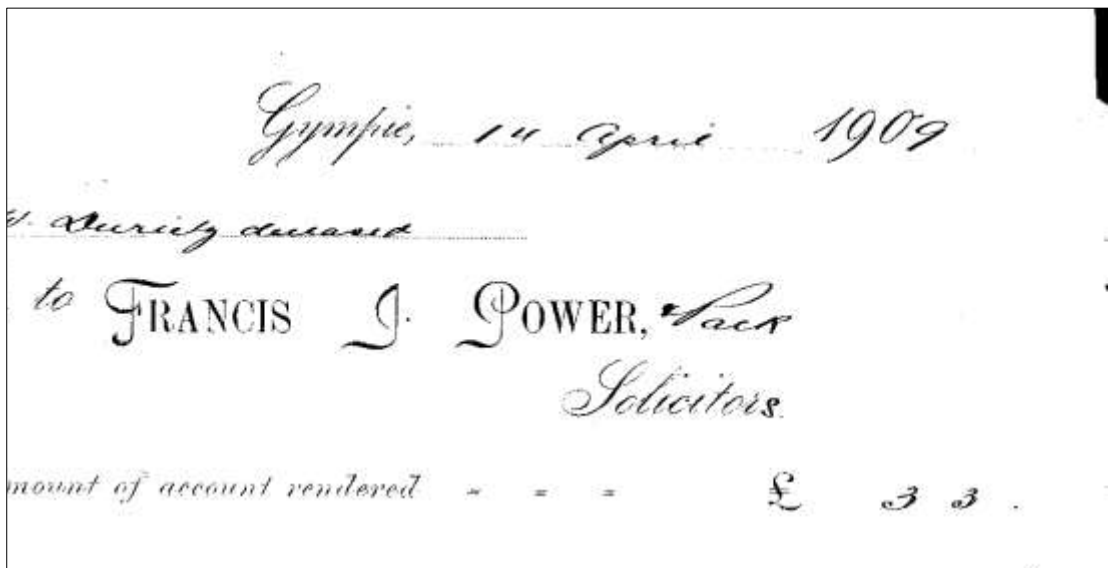 Gympie, 14 April 1909
W. Durietz deceased
to FRANCIS J. POWER, & Pack
Solicitors.
mount of account rendered - = = £ 3 3 .